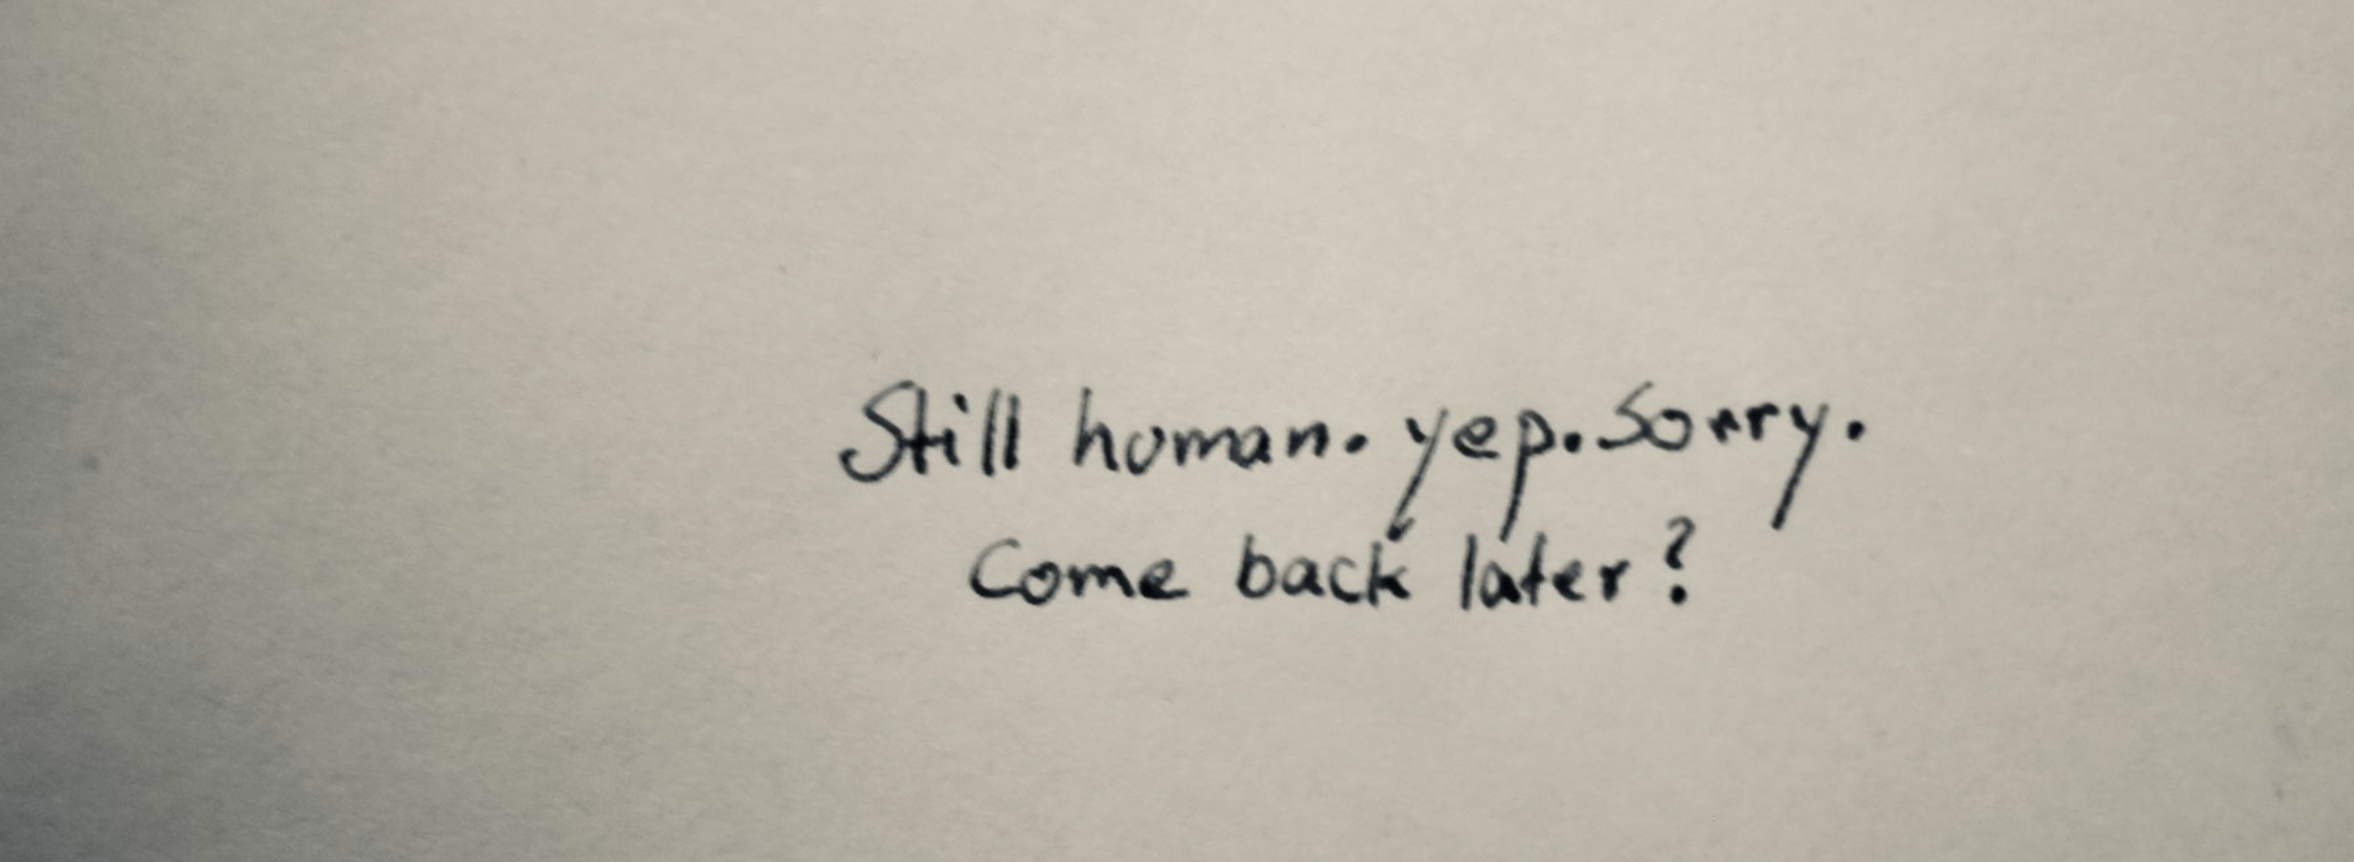 Still human. yep. Sorry.
Come back later?